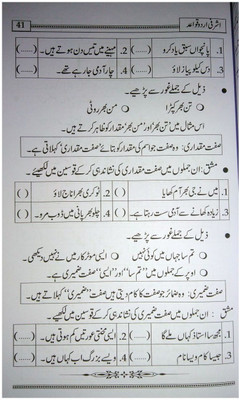 41 اشرفی اردو قواعد
1. پانچواں سبق یاد کرو (......) 2. مہینے میں تیس دن ہوتے ہیں۔ (......)
3. دس کیلو پیاز لاؤ (......) 4. چار آدمی جا رہے تھے۔ (......)
ذیل کے جملے غور سے پڑھیے۔
تن بھر کپڑا من بھر روئی
اس مثال میں تن بھر اور من بھر مقدار کو ظاہر کرتے ہیں۔
صفت مقداری: وہ صفت جو اسم کی مقدار کو بتائے صفت مقداری کہلاتی ہے۔
مشق: ان جملوں میں صفت مقداری کی نشاندہی کر کے قوسین میں لکھئے۔
1. میں نے جی بھر آم کھایا ( ) 2. ٹوکری بھر اناج لاؤ ( )
3. زیادہ کھانے سے آدمی ست رہتا ہے۔ ( ) 4. چلو بھر پانی میں ڈوب مرو۔ ( )
ذیل کے جملے غور سے پڑھیے۔
تم سا جہاں میں کوئی نہیں ایسی موٹر کار میں نے نہیں دیکھی۔
اوپر کے جملے میں "تم سا" اور "ایسی" صفت ضمیری ہے۔
صفت ضمیری: وہ ضمائر جو صفت کا کام دیتی ہیں صفت "ضمیری" کہلاتے ہیں۔
مشق: ان جملوں میں صفت ضمیری کی نشاندہی کر کے قوسین میں لکھئے۔
1. مجھ سا استاذ کہاں ملے گا (......) 2. ایسی محنتی عورتیں کم ہوتی ہیں۔ (......)
3. جیسا کام ویسا نام (......) 4. ویسے بزرگ اب کہاں ہیں۔ (......)